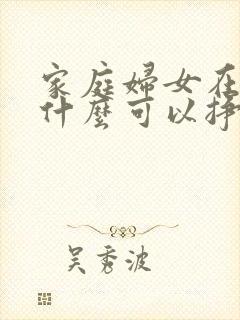 家庭婦女在
什麼可以掙
吴秀波